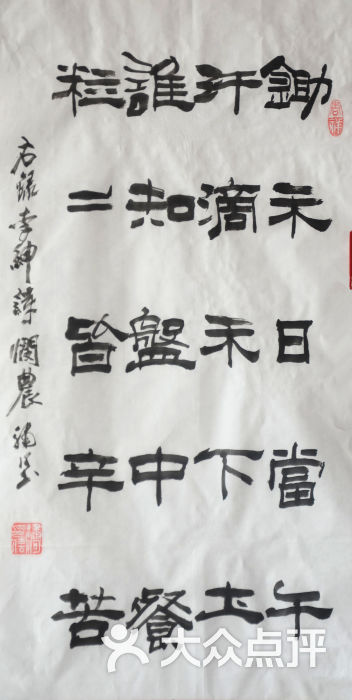 鋤禾日當午
汗滴禾下土
誰知盤中餐
粒二皆辛苦
右錄李紳詩憫農
吉祥
大众点评